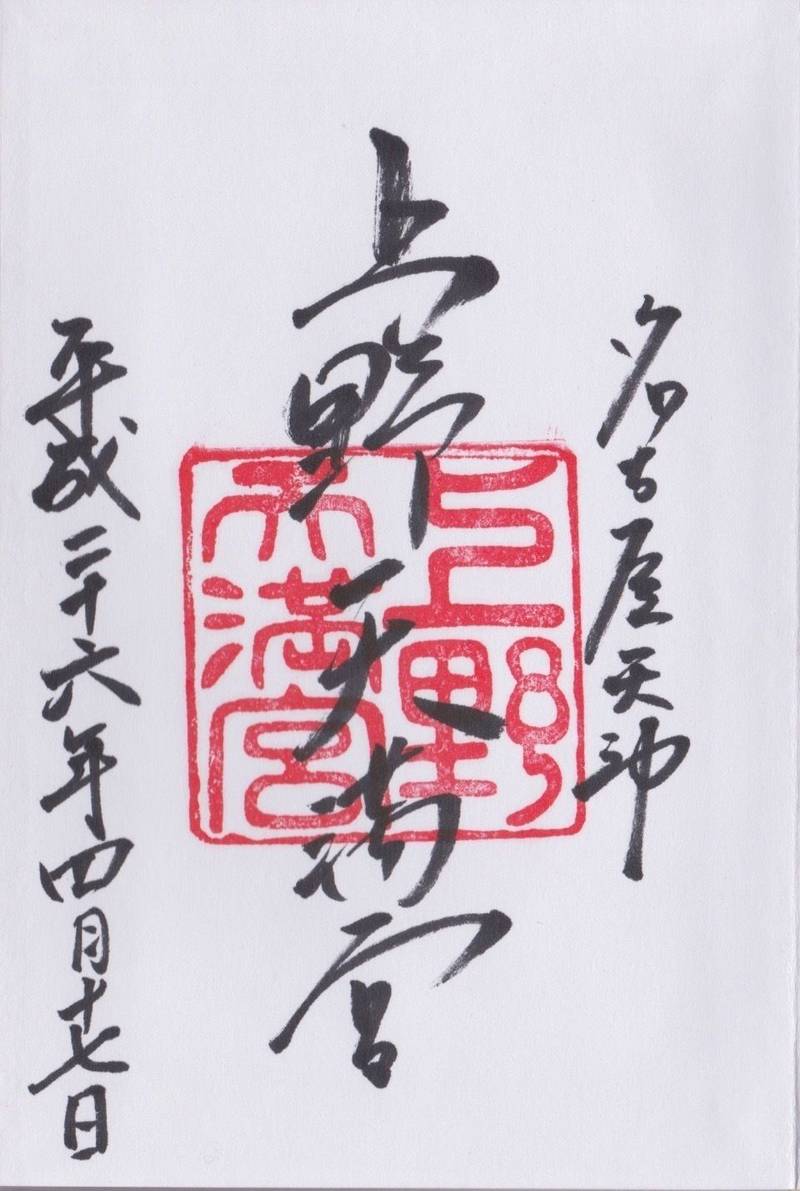 名古屋天神
上野天満宮
上野天満宮
平成二十六年四月十七日